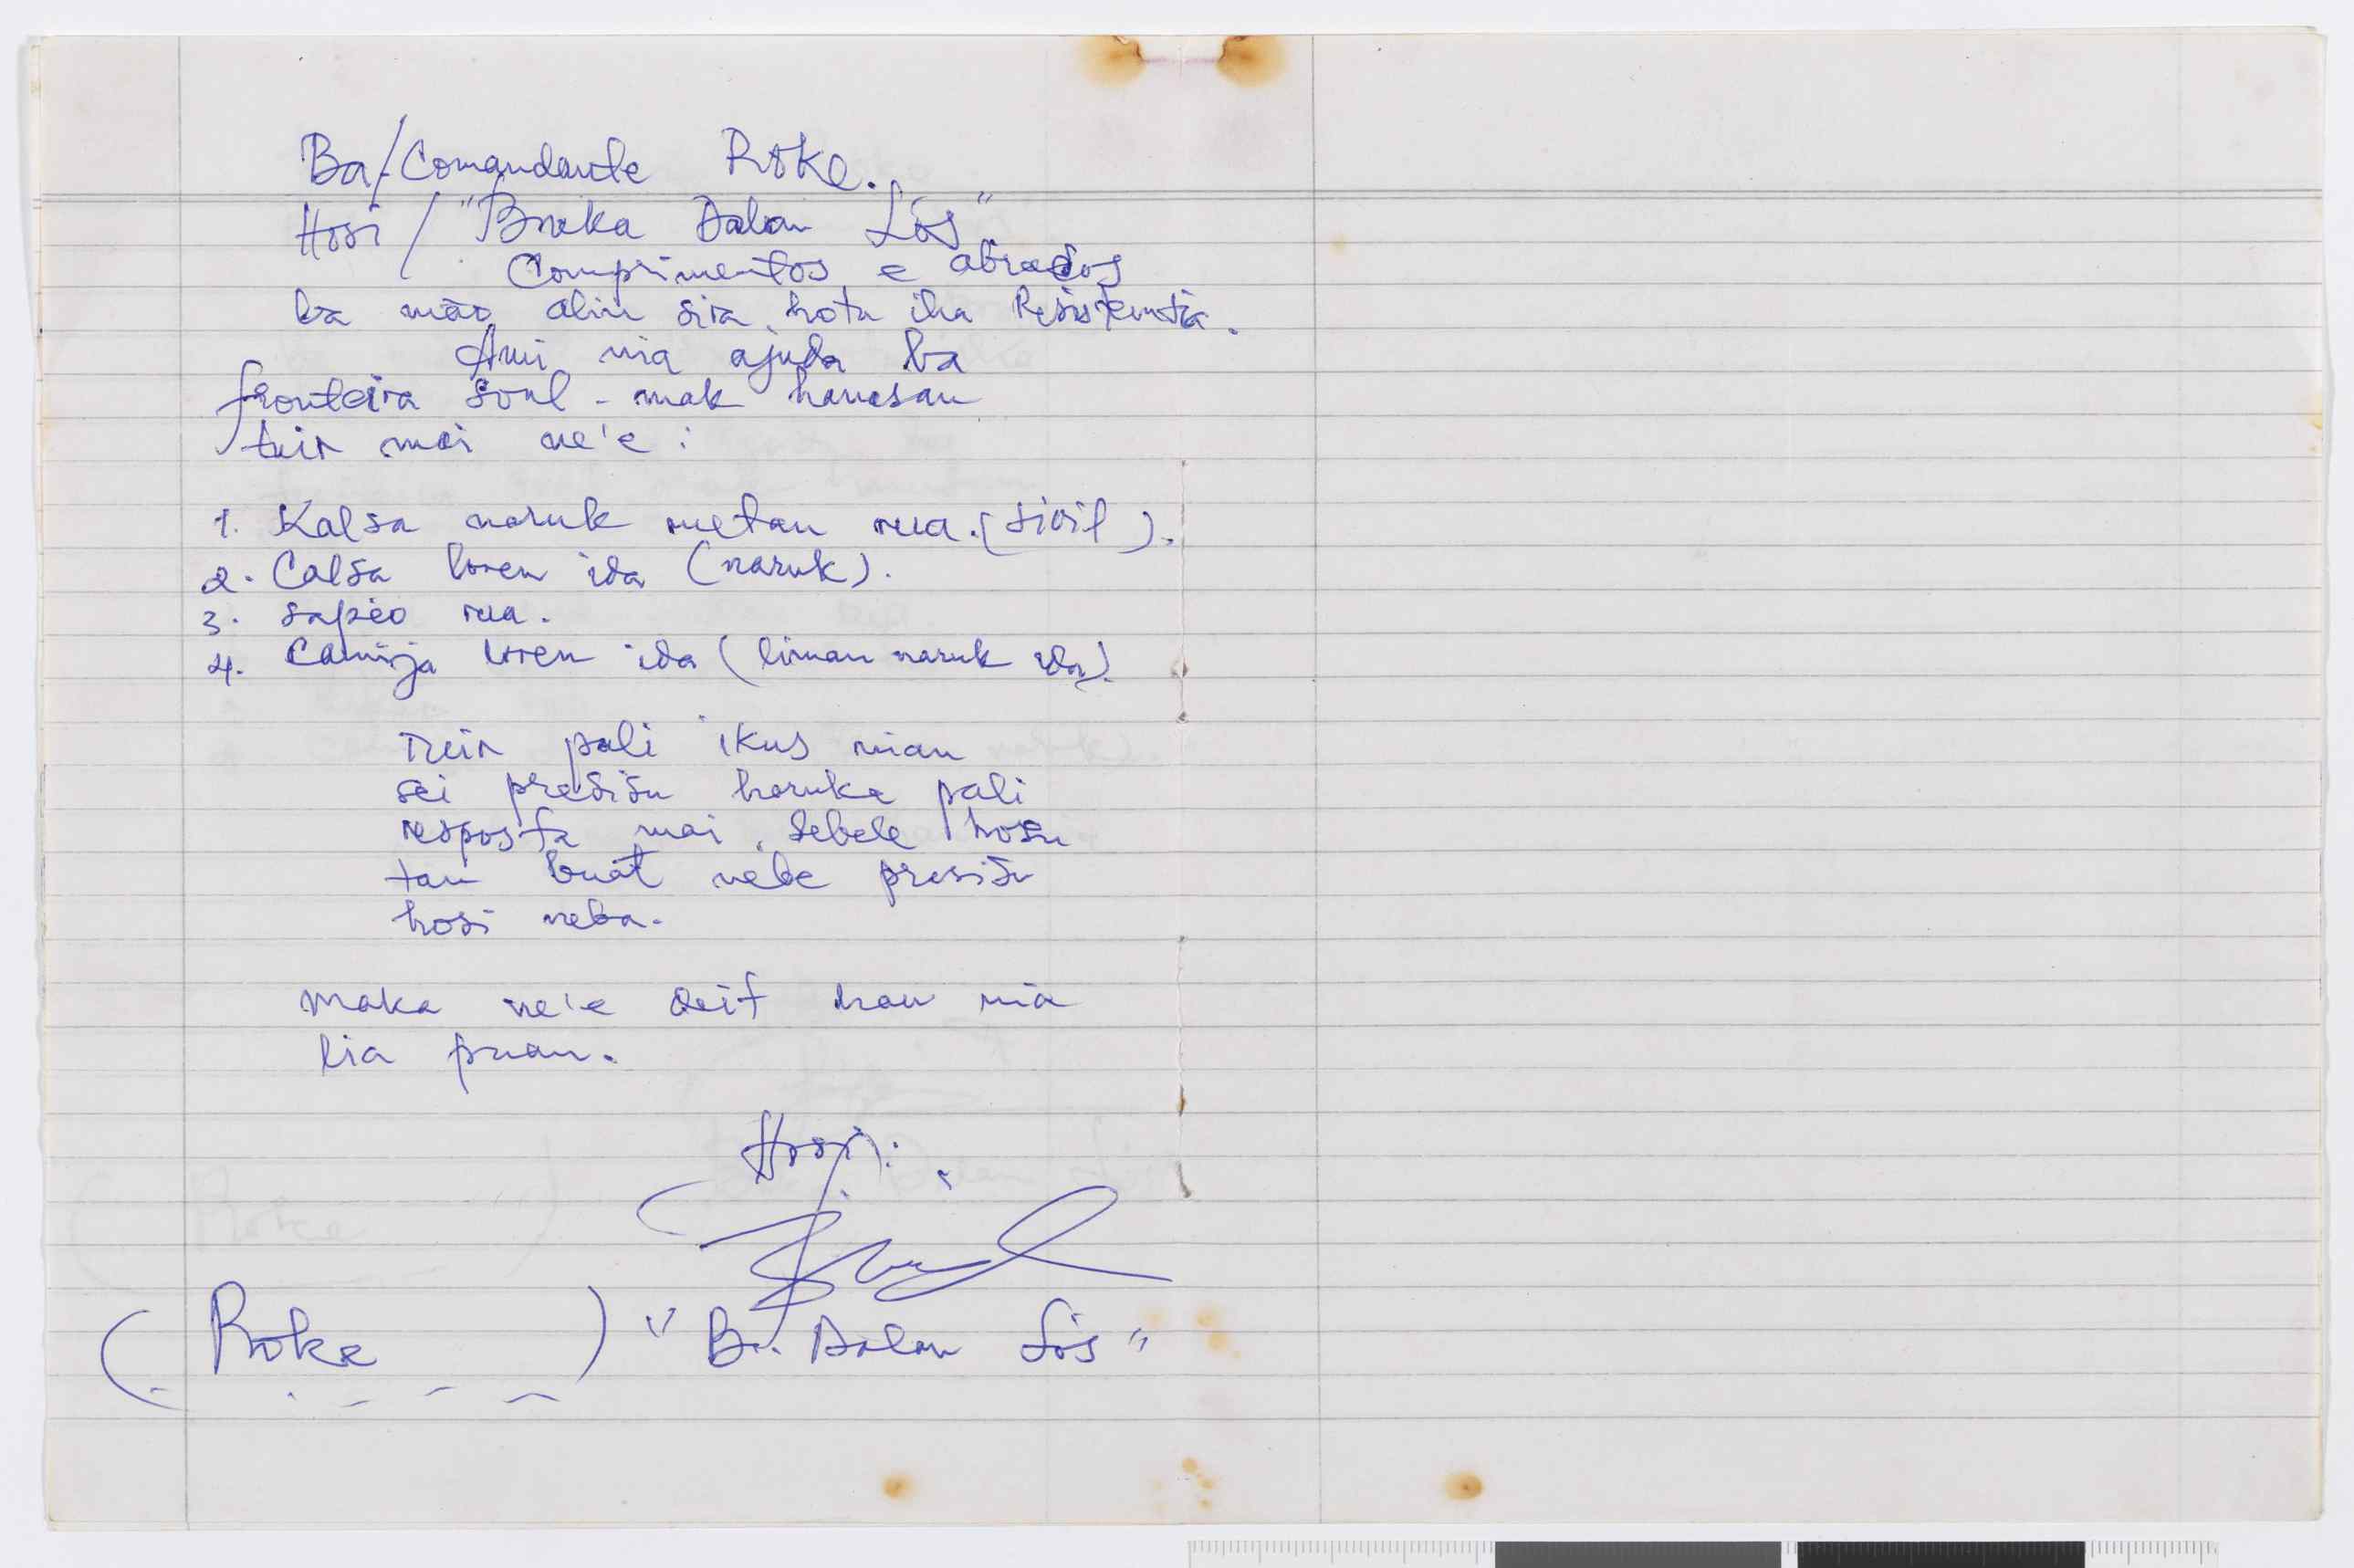 Ba/Comandante Roke.
Hosi / "Buka Dalan Lós"
Comprimentos e abraços
ba mão alin sira hotu iha Resistentia.
Ami nia ajuda ba
fronteira soul - mak hanesan
tuir mai ne'e :
1. Kalsa naruk metan rua. (sivil).
2. Calsa loren ida (naruk).
3. sapeo rua.
4. Camija loren ida (liman naruk ida).
Tuir pali ikus nian
sei presisu haruka pali
resposta mai, sebele hosu
tan buat nebe presisu
hosi neba.
maka ne'e deit hau nia
lia fuan.
Hosi:
(Roke) "B. Dalan Lós"